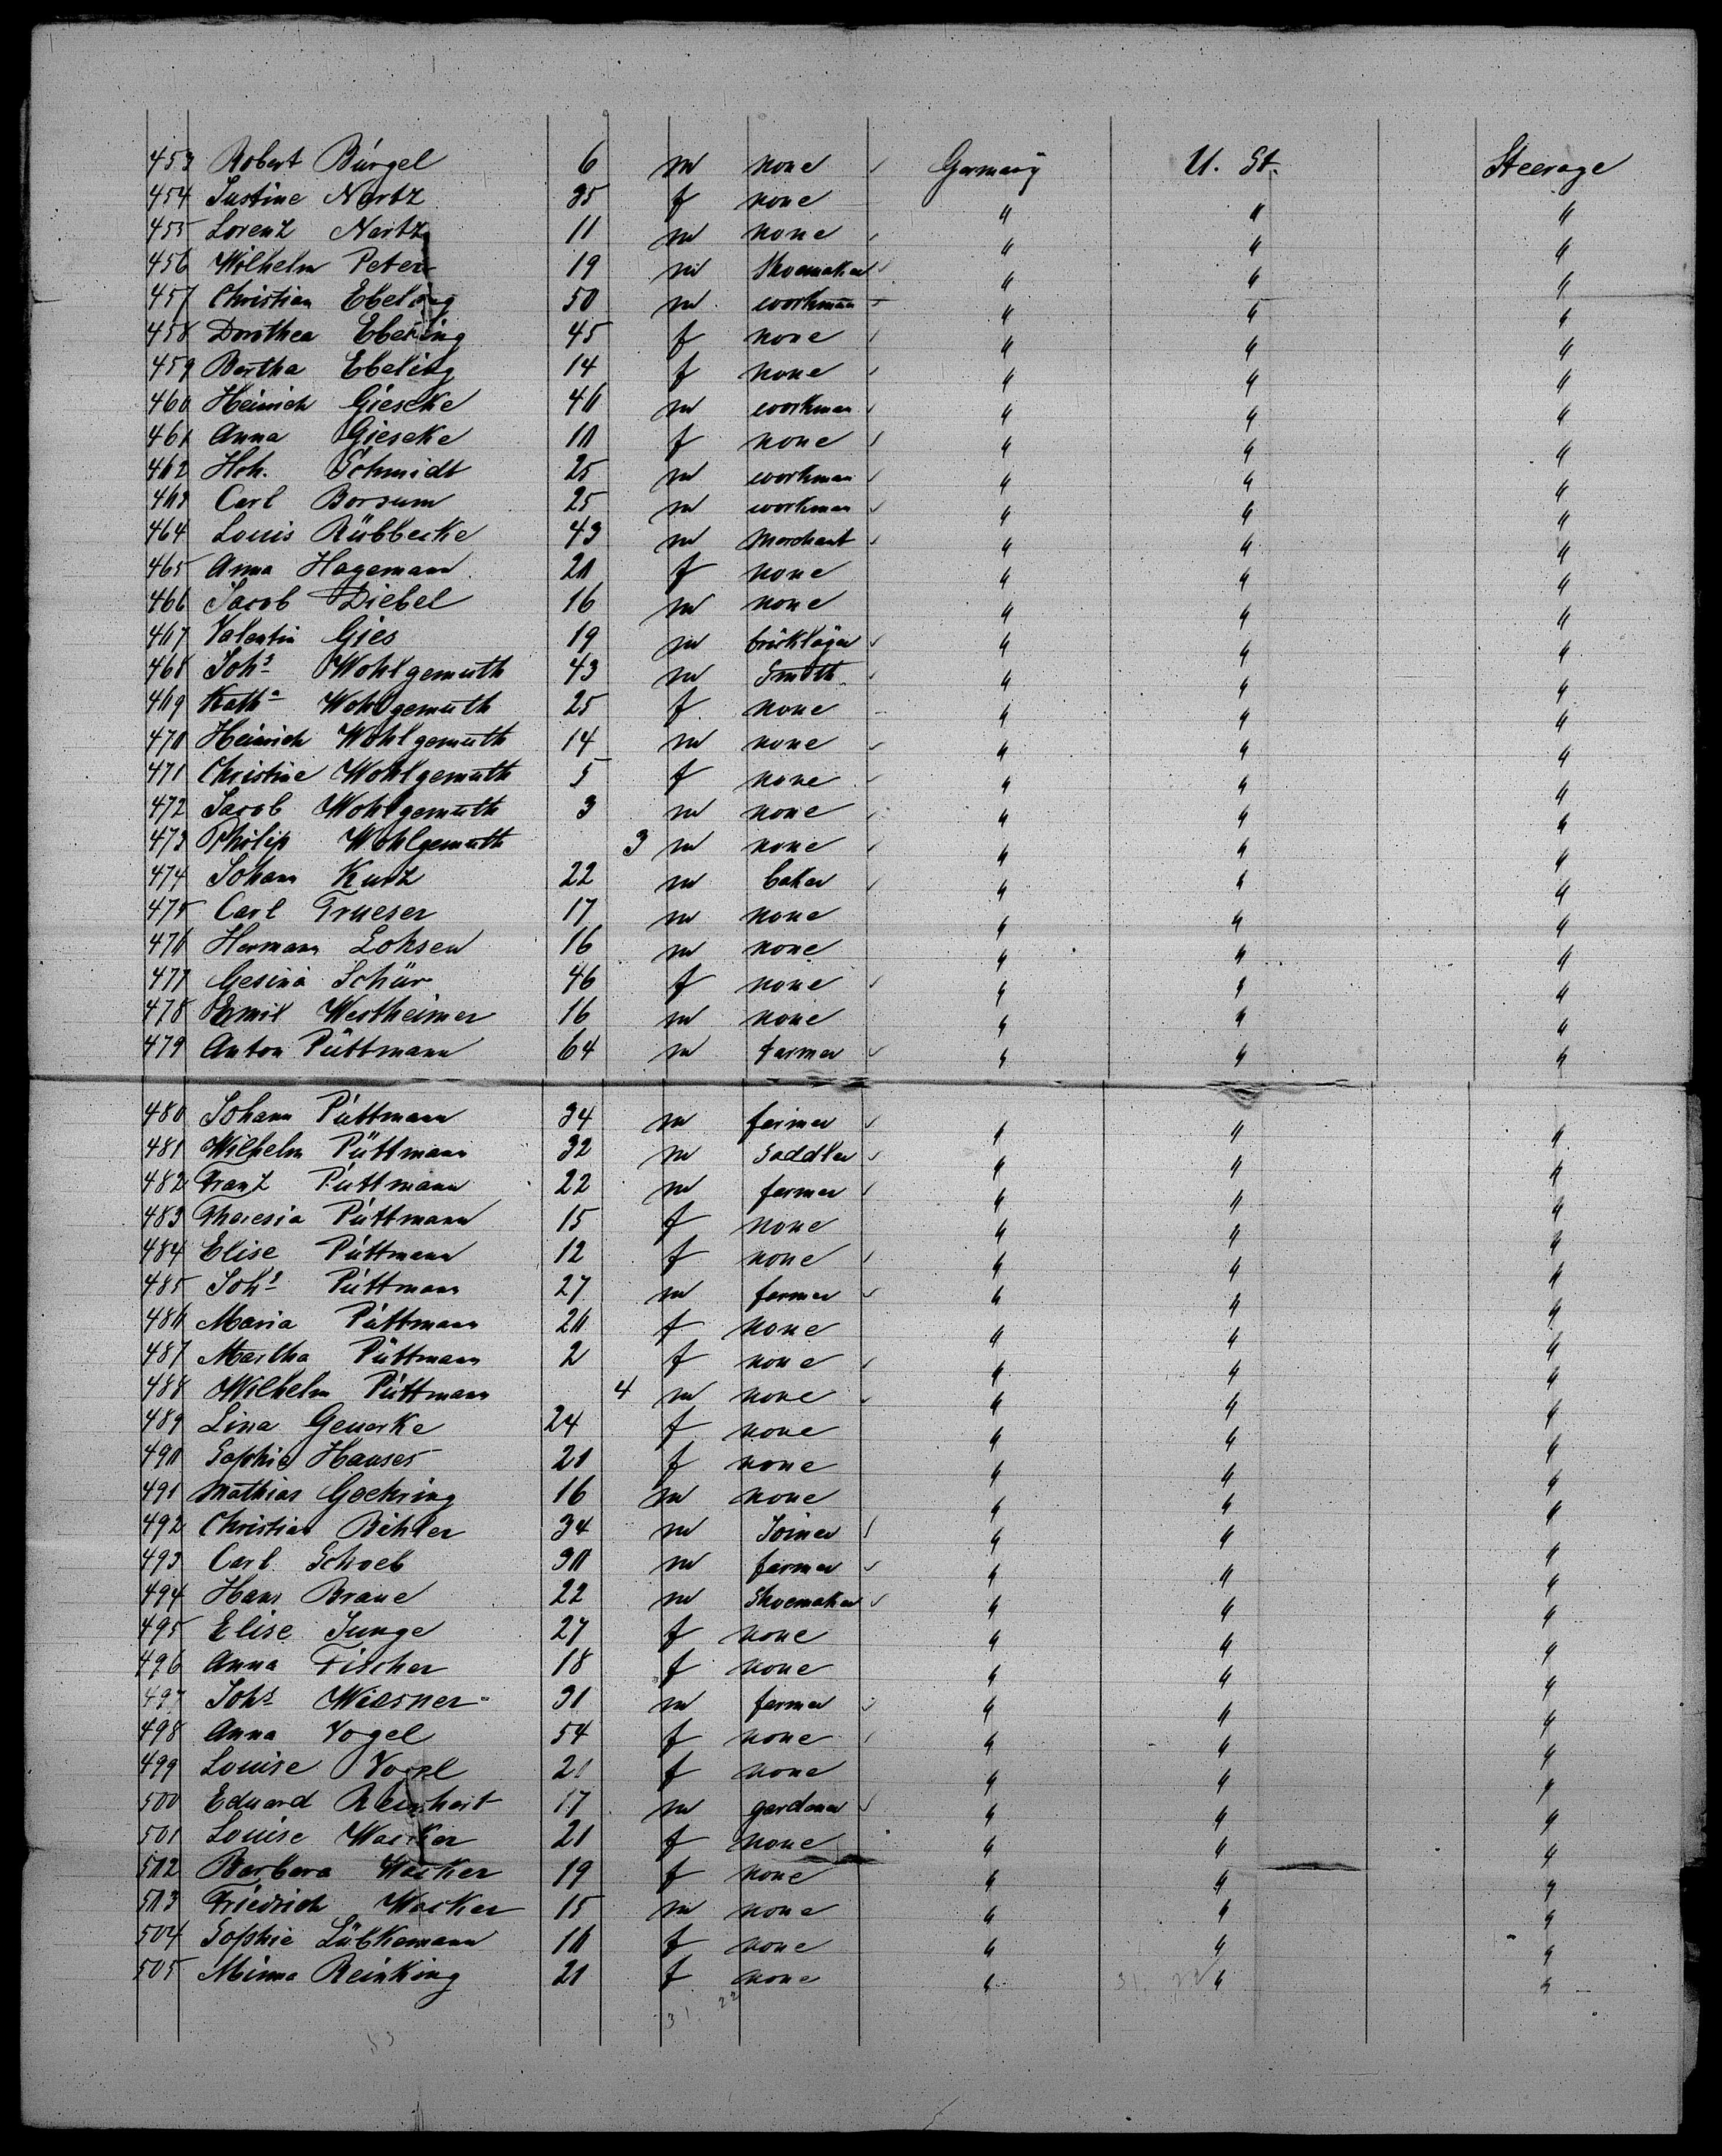 453 Robert Bürgel 6 m none Germany U. St. Steerage
454 Justine Nertz 35 f none " " "
455 Lorenz Nertz 11 m none " " "
456 Wilhelm Peter 19 m Shoemaker " " "
457 Christian Ebeling 50 m workman " " "
458 Dorothea Ebeling 45 f none " " "
459 Bertha Ebeling 14 f none " " "
460 Heinrich Giescke 40 m workman " " "
461 Anna Giescke 10 f none " " "
462 Hch. Schmidt 25 m workman " " "
463 Carl Borsum 25 m workman " " "
464 Louis Rübbecke 43 m Merchant " " "
465 Anna Hagemann 20 f none " " "
466 Jacob Diebel 16 m none " " "
467 Valentin Gies 19 m bricklayer " " "
468 Johs Wohlgemuth 43 m Smith " " "
469 Katha Wohlgemuth 25 f none " " "
470 Heinrich Wohlgemuth 14 m none " " "
471 Christine Wohlgemuth 5 f none " " "
472 Jacob Wohlgemuth 3 m none " " "
473 Philip Wohlgemuth 3 m none " " "
474 Johann Kurz 22 m baker " " "
475 Carl Trueser 17 m none " " "
476 Hermann Lohsen 16 m none " " "
477 Gesina Schür 46 f none " " "
478 Emil Westheimer 16 m none " " "
479 Anton Püttmann 64 m farmer " " "
480 Johann Püttmann 34 m farmer " " "
481 Wilhelm Püttmann 32 m Saddler " " "
482 Franz Püttmann 22 m farmer " " "
483 Theresia Püttmann 15 f none " " "
484 Elise Püttmann 12 f none " " "
485 Johs Püttmann 27 m farmer " " "
486 Maria Püttmann 20 f none " " "
487 Martha Püttmann 2 f none " " "
488 Wilhelm Püttmann 4 m none " " "
489 Lina Generke 24 f none " " "
490 Sophie Hauser 21 f none " " "
491 Mathias Goehring 16 m none " " "
492 Christian Bihler 34 m Joiner " " "
493 Carl Schoeb 30 m farmer " " "
494 Hans Braue 22 m Shoemaker " " "
495 Elise Junge 27 f none " " "
496 Anna Fischer 18 f none " " "
497 Johs Wiesner 31 m farmer " " "
498 Anna Vogel 54 f none " " "
499 Louise Vogel 21 f none " " "
500 Eduard Reinhart 17 m gardener " " "
501 Louise Wacker 21 f none " " "
502 Barbara Wacker 19 f none " " "
503 Friedrich Wacker 15 m none " " "
504 Sophie Lübkemann 10 f none " " "
505 Minna Reinking 21 f none " " "
31. 22